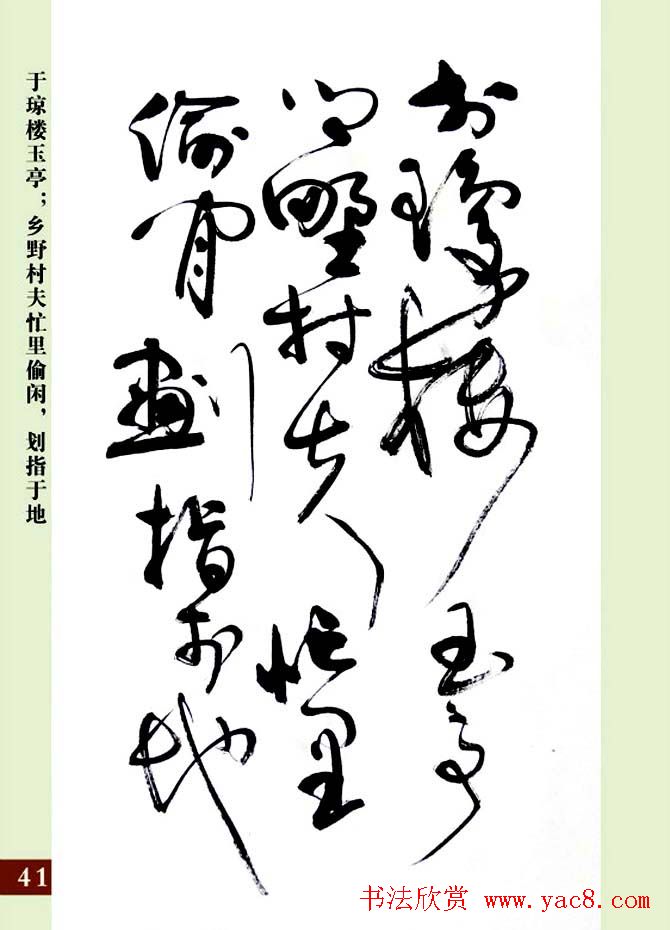 於瓊樓玉亭
鄉野村夫忙里
偷閒劃指於地
于琼楼玉亭；乡野村夫忙里偷闲，划指于地
41
书法欣赏 www.yac8.com